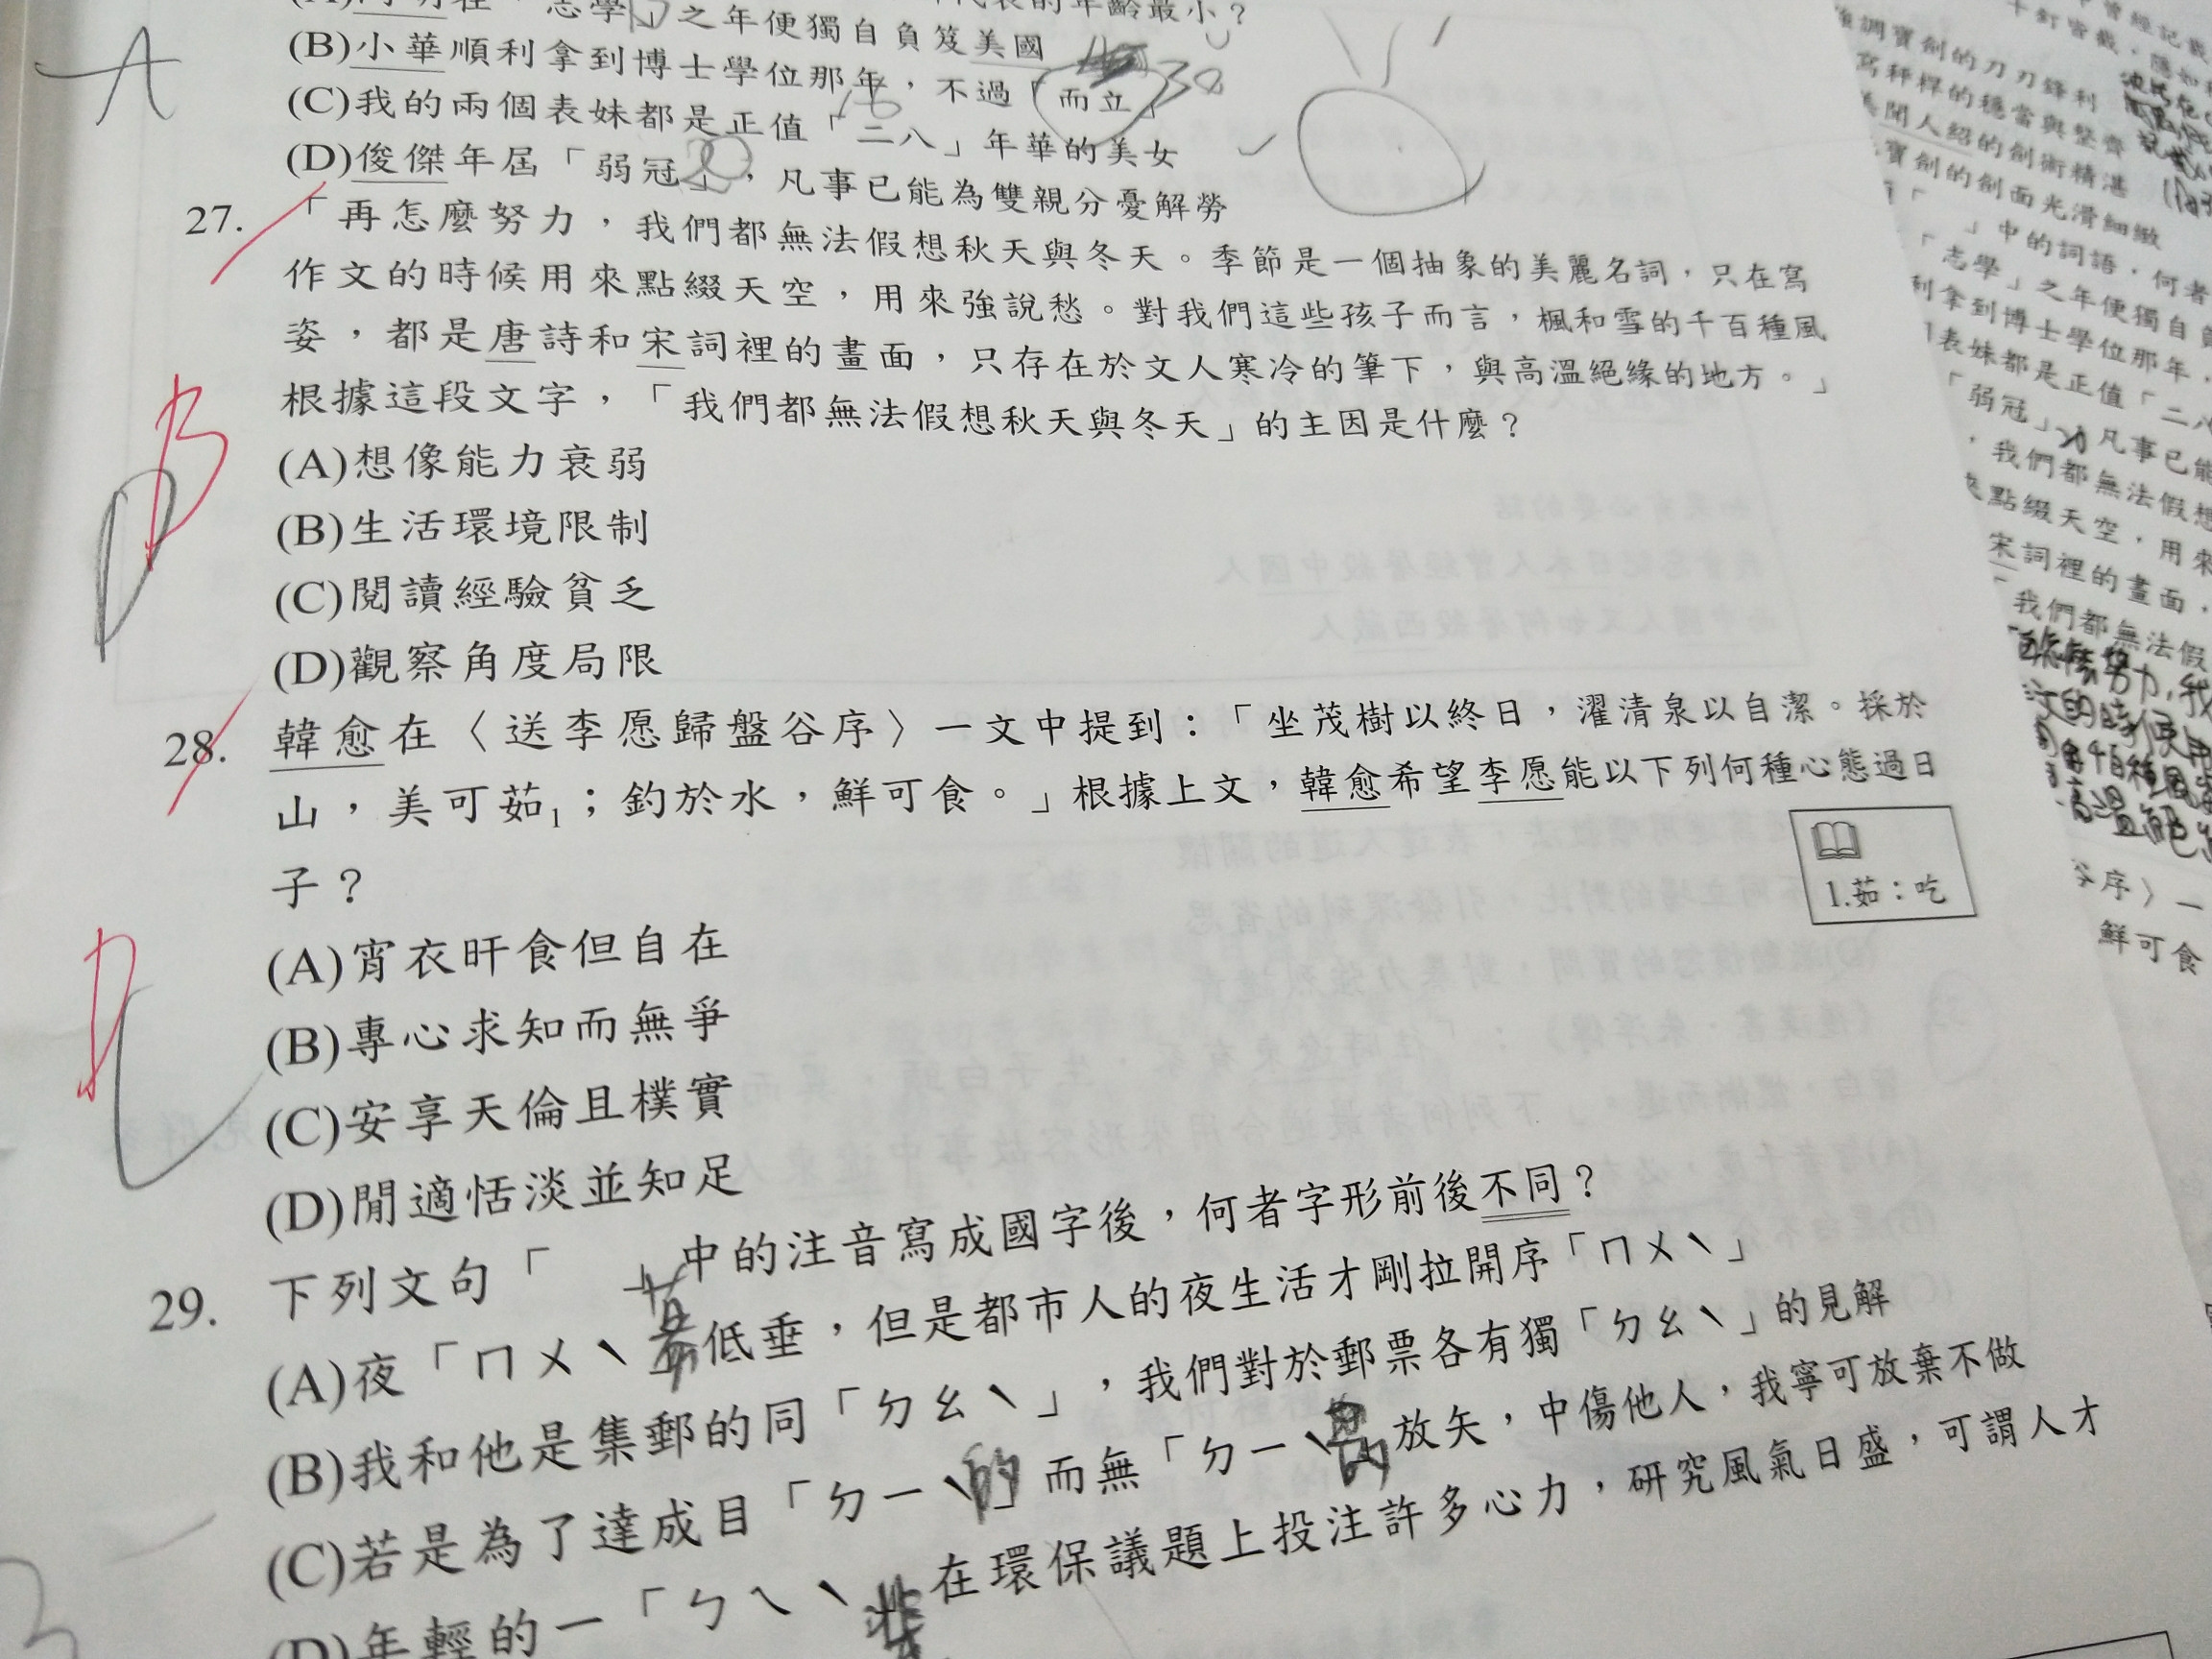 在「志學」之年便獨自負笈美國
(B)小華順利拿到博士學位那年，不過「而立」 30
(C)我的兩個表妹都是正值「二八」年華的美女 16
(D)俊傑年屆「弱冠」，凡事已能為雙親分憂解勞 20
A
27.「再怎麼努力，我們都無法假想秋天與冬天。季節是一個抽象的美麗名詞，只在寫
作文的時候用來點綴天空，用來強說愁。對我們這些孩子而言，楓和雪的千百種風
姿，都是唐詩和宋詞裡的畫面，只存在於文人寒冷的筆下，與高溫絕緣的地方。」
根據這段文字，「我們都無法假想秋天與冬天」的主因是什麼？
(A)想像能力衰弱
(B)生活環境限制
(C)閱讀經驗貧乏
(D)觀察角度局限
B
D
28.韓愈在〈送李愿歸盤谷序〉一文中提到：「坐茂樹以終日，濯清泉以自潔。採於
山，美可茹1；釣於水，鮮可食。」根據上文，韓愈希望李愿能以下列何種心態過日
子？
1.茹：吃
(A)宵衣旰食但自在
(B)專心求知而無爭
(C)安享天倫且樸實
(D)閒適恬淡並知足
D
C
29.下列文句「 中的注音寫成國字後，何者字形前後不同？
(A)夜「ㄇㄨˋ 低垂，但是都市人的夜生活才剛拉開序「ㄇㄨˋ」
(B)我和他是集郵的同「ㄉㄠˋ」，我們對於郵票各有獨「ㄉㄠˋ」的見解
(C)若是為了達成目「ㄉㄧˋ」而無「ㄉㄧˋ 放矢，中傷他人，我寧可放棄不做
的
(D)年輕的一「ㄅㄟˋ 在環保議題上投注許多心力，研究風氣日盛，可謂人才
調寶劍的刀刃鋒利
秤桿的穩當與整齊
聞人紹的劍術精湛
寶劍的劍面光滑細緻
「 」中的詞語，何者
「志學」之年便獨自
利拿到博士學位那年，
表妹都是正值「二八
「弱冠」，凡事已能
，我們都無法假想
點綴天空，用來
宋詞裡的畫面，
我們都無法假
谷序〉一
鮮可食